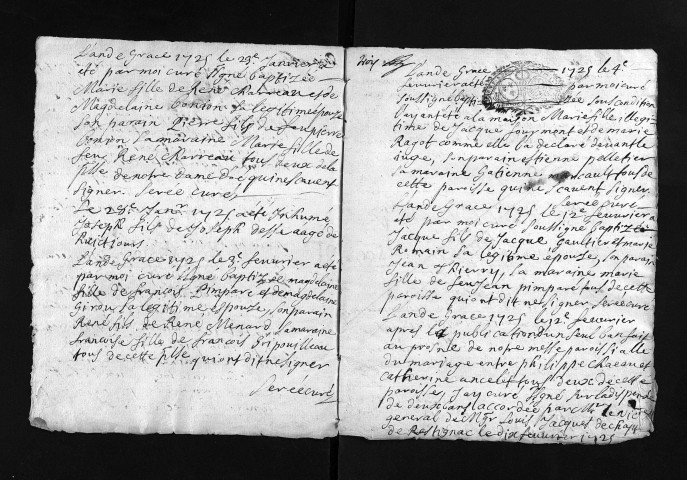 L'an de Grace 1725 le 29e Janvier a
été par moi curé signé baptizée
Marie fille de René Charreau et de
Magdelaine bonion sa legitime epouse
son parain pierre fils de feu pierre
bonion sa maraine Marie fille de
feu René Charreau tous deux de la
ville de notre dame d'oe qui ne scavent
signer. Serée curé
Le 28e Janr 1725 a été Inhumé
Joseph fils de Joseph aagé de
huict jours
L'an de Grace 1725 le 3e fevrier a été
par moi curé signé baptizée magdelaine
fille de francois Pimpare et de magdelaine
Girou sa legitime epouse, son parain
René fils de René Menard sa maraine
francoise fille de francois
tous de cette ville qui ont dit ne signer
Serée curé
L'an de Grace 1725 le 4e
fevrier a été par moi curé
soussigné baptizée sous condition
l'ayant été a la maison Marie fille illegi
time de Jacque Jouymont et de marie
Ragot comme elle l'a declaré devant le
iuge, son parain estienne pelletier
sa maraine Gatienne tous de
cette paroisse qui ne scavent signer.
Serée curé
L'an de Grace 1725 le 12e fevrier a
été par moi curé soussigné baptizé
Jacque fils de Jacque Gaultier et marie
Romain sa legitime epouse, son parain
Jean Pierry, sa maraine marie
fille de feu Jean pimpare tous de cette
paroisse qui ont dit ne signer Serée curé
L'an de Grace 1725 le 12e fevrier
apres la publication d'un seul ban fait
au prosne de notre messe paroissialle
du mariage entre philippe et
Catherine ancelet tous deux de cette
paroisse, j'ay curé signé sur la dispense
de deux bans accordée par Mr le vic
general de Mgr Louis Jacque de Chapt
de Rastignac le dix fevrier 1725